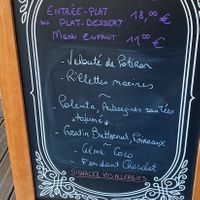 ENTRÉE-PLAT
OU
PLAT-DESSERT 18,00 €
MENU ENFANT 11,00 €
- Velouté de Potiron
- Rillettes marines
~
- Polenta, Aubergines sautées
- Gratin Butternut, Poireaux
~
- Crème Coco
- Fondant Chocolat
SIGNALER VOS ALLERGIES